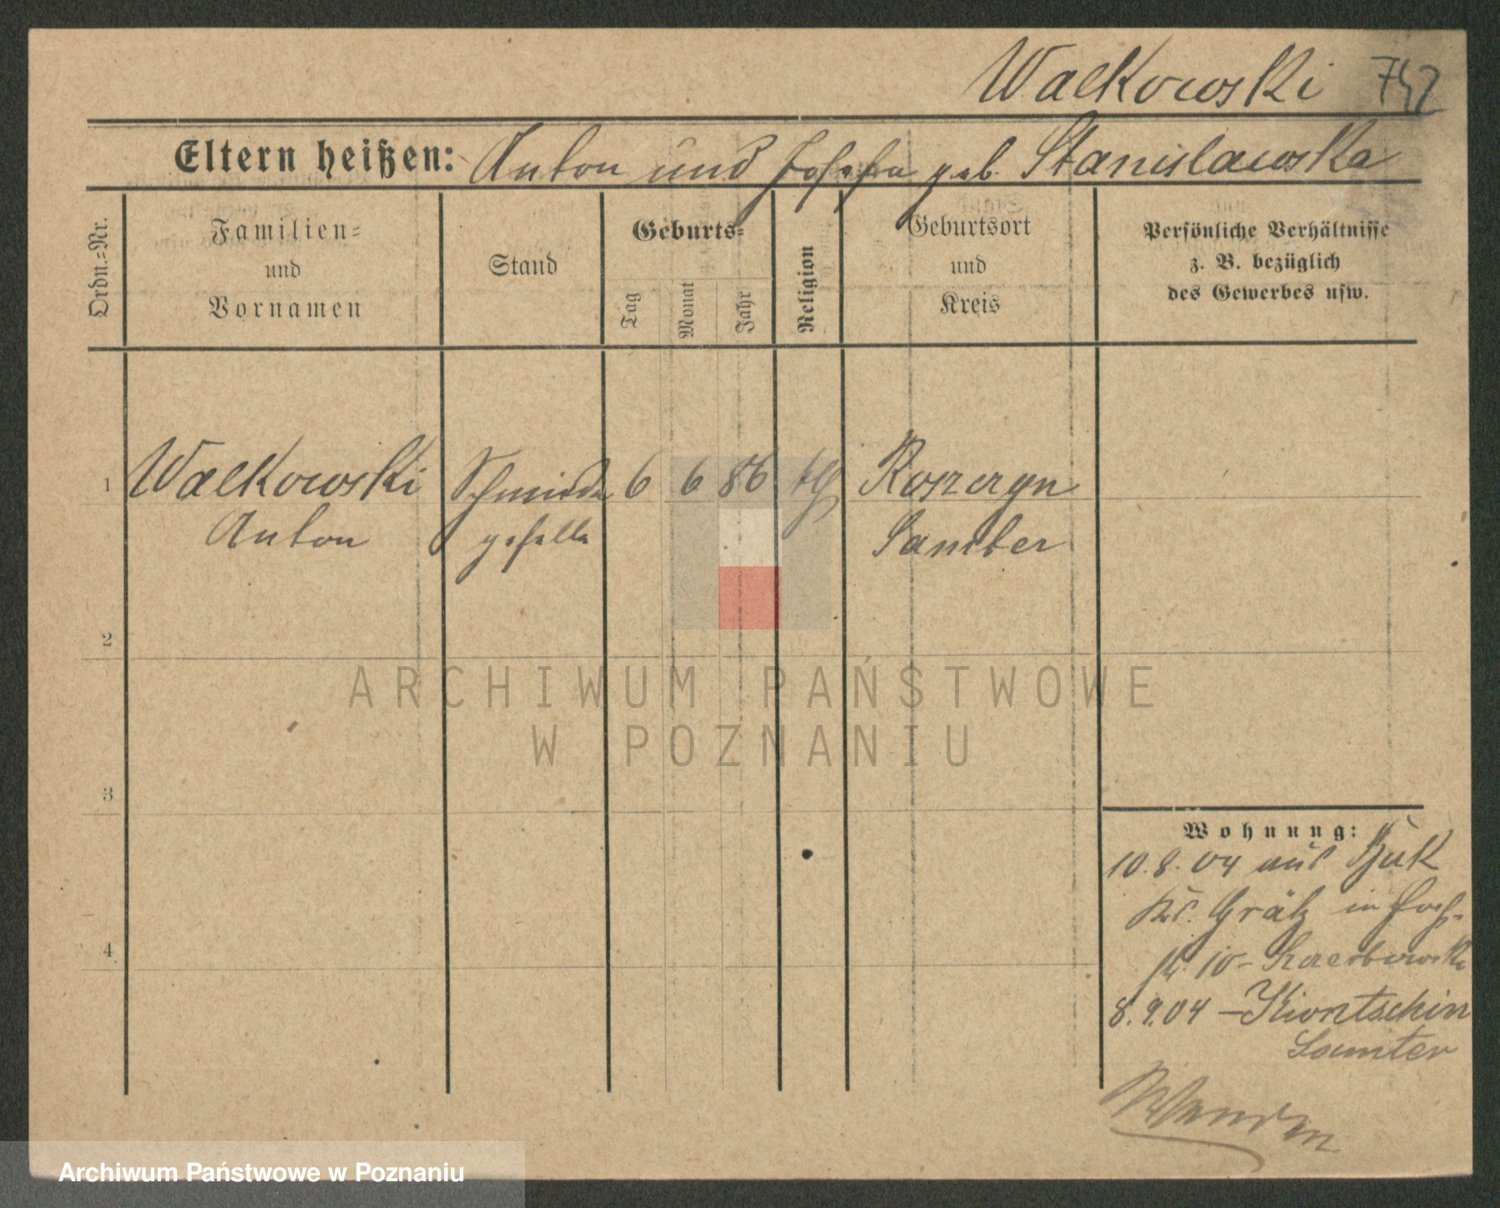 Walkowski 742
Eltern heißen: Anton und Josefa geb. Stanislawska
Ordn.-Nr.
Familien-
und
Vornamen
Stand
Geburts-
Tag
Monat
Jahr
Religion
Geburtsort
und
Kreis
Persönliche Verhältnisse
z. B. bezüglich
des Gewerbes usw.
1 Walkowski Schmiede 6 6 86 kth
Anton geselle Samter
2
3
4
Wohnung:
10.8.04 aus Buk
Krs. Grätz in
10 -
8.9.04 - Kiontschin
Samter
Wenden
ARCHIWUM PAŃSTWOWE
W POZNANIU
Archiwum Państwowe w Poznaniu